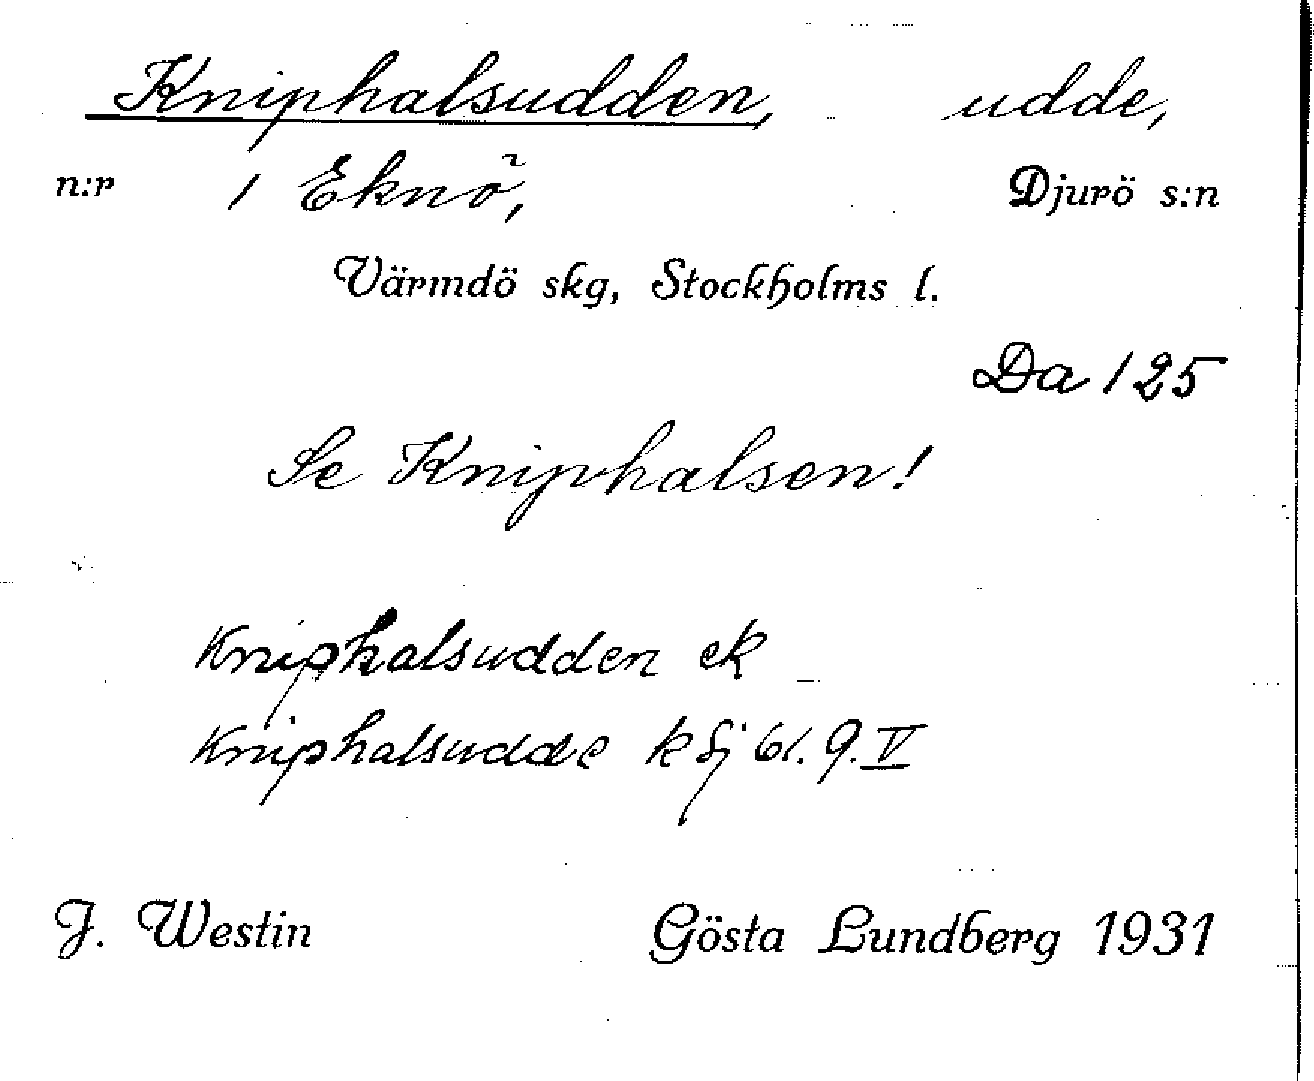 Kniphalsudden, udde,
n:r 1 Eknö, Djurö s:n
Värmdö skg, Stockholms l.
Da 125
Se Kniphalsen!
Kniphalsudden ek
Kniphalsudde k sj 61. 9. V
J. Westin Gösta Lundberg 1931